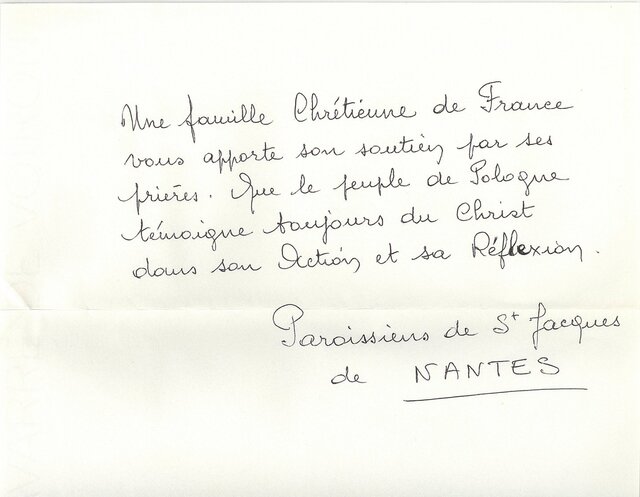 Une famille Chrétienne de France
vous apporte son soutien par ses
prières. Que le peuple de Pologne
témoigne toujours du Christ
dans son Action et sa Réflexion.
Paroissiens de St Jacques
de NANTES